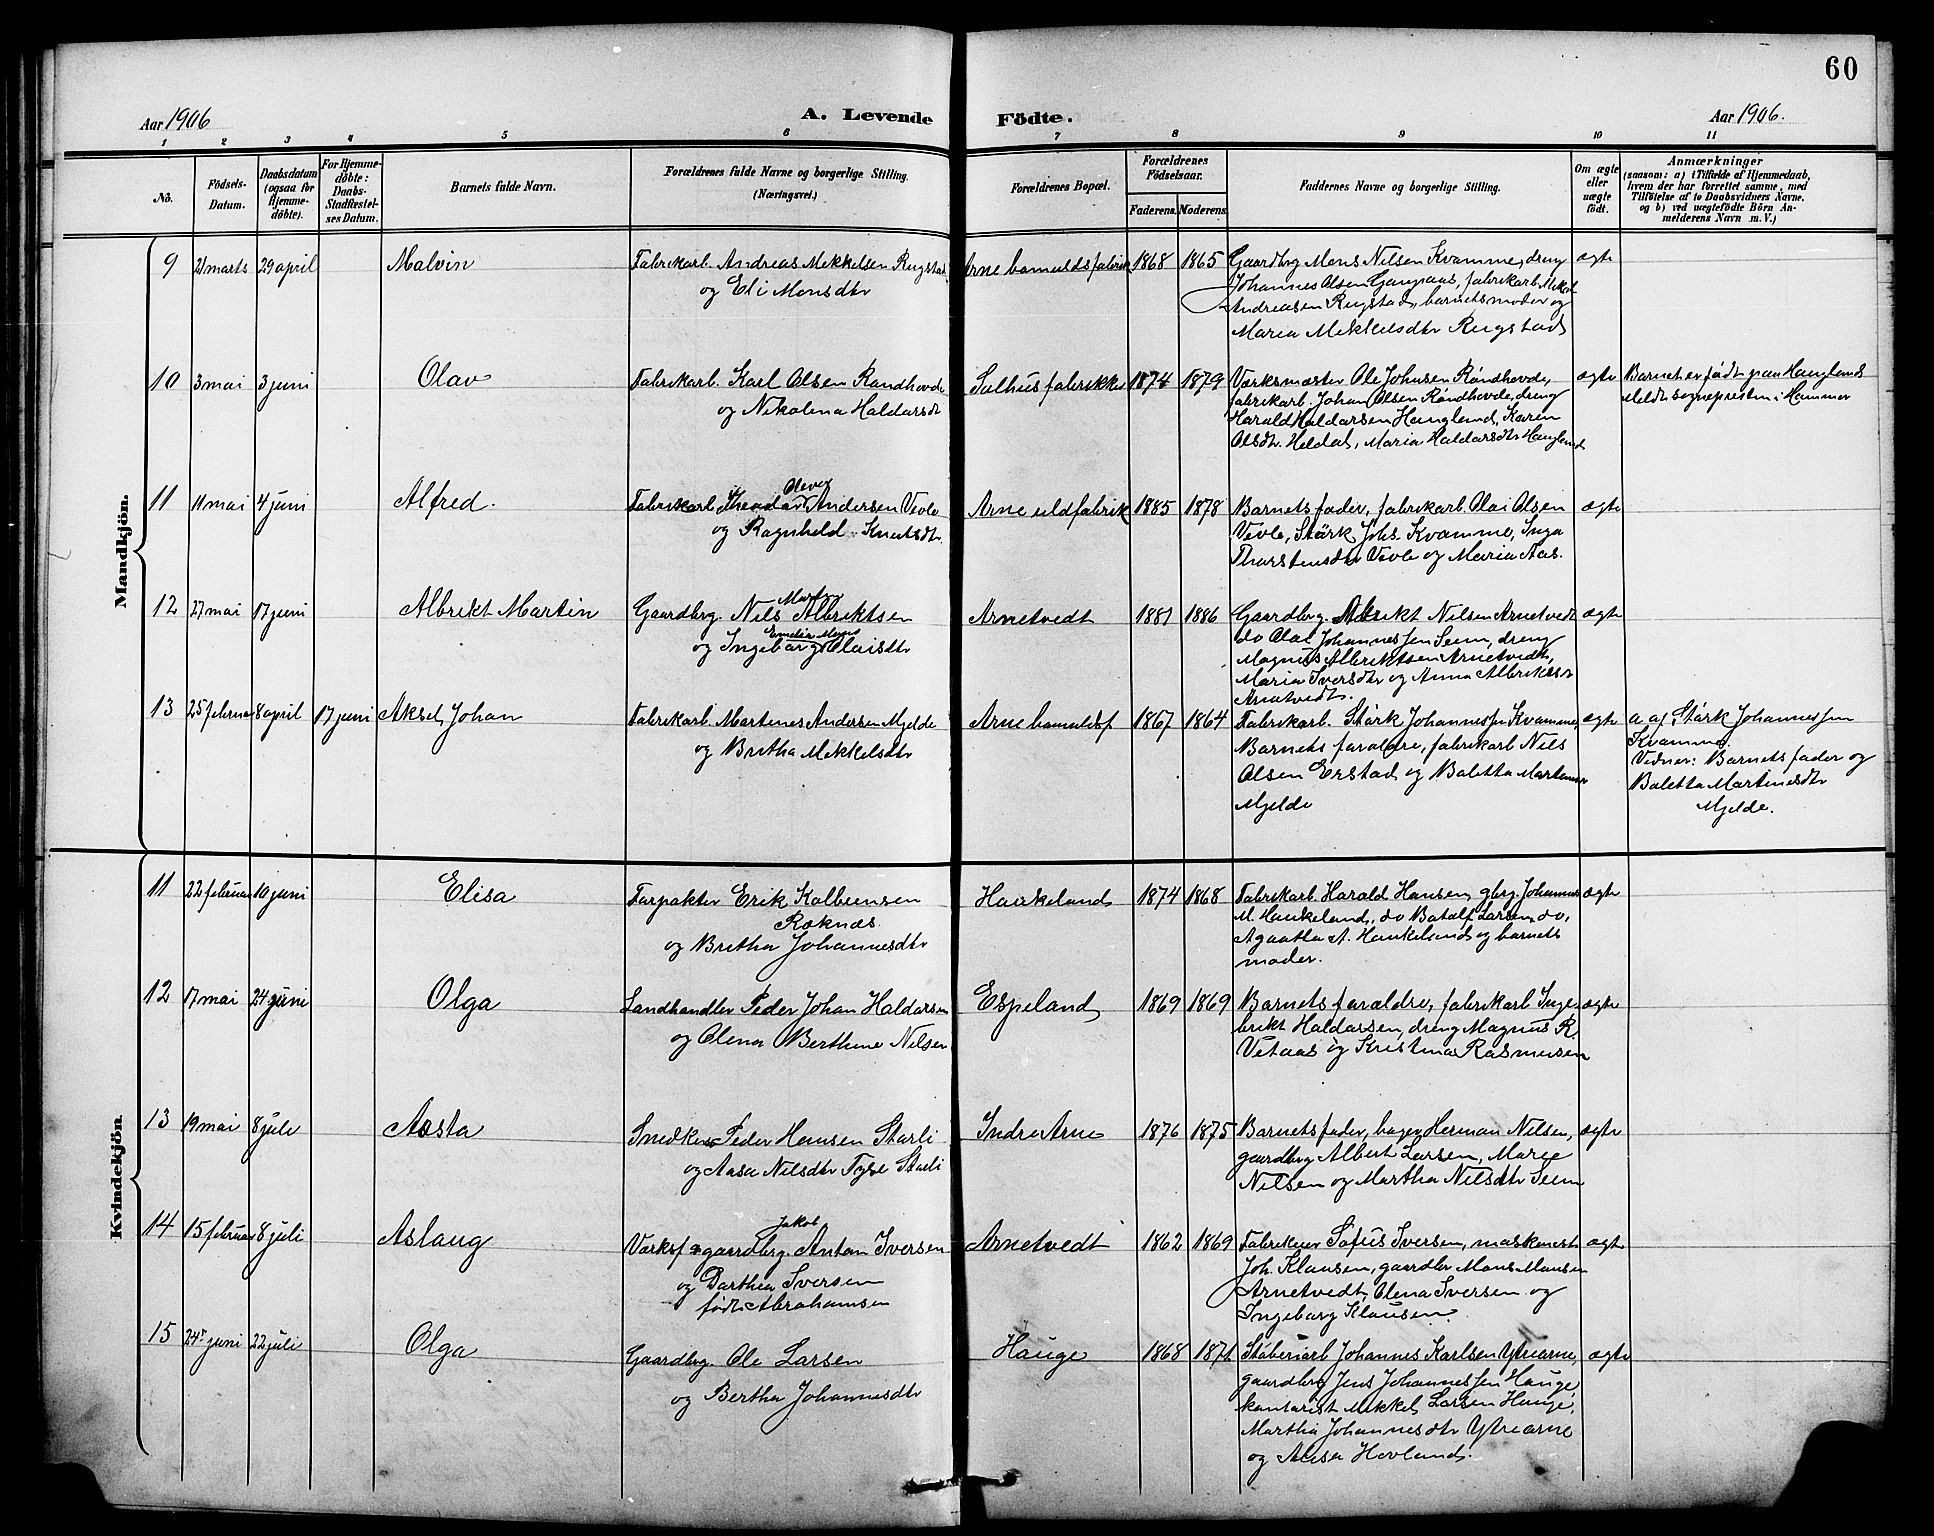 60
Aar 1906
A. Levende
Födte.
Aar 1906.
1 2 3 4 5 6 7 8 9 10 11
No.
Födsels-
Datum.
Daabsdatum
(ogsaa for
Hjemme-
döbte).
For Hjemme-
döbte:
Daabs-
Stadfæstel-
ses Datum.
Barnets fulde Navn.
Forældrenes fulde Navne og borgerlige Stilling.
(Næringsvei.)
Forældrenes Bopæl.
Forældrenes
Födselsaar.
Faderens. Moderens.
Faddernes Navne og borgerlige Stilling.
Om ægte
eller
uægte
födt.
Anmærkninger
(saasom: a) i Tilfælde af Hjemmedaab,
hvem der har forrettet samme, med
Tilföielse af to Daabsvidners Navne,
og b) ved uægtefödte Börn An-
melderens Navn m. V.)
Mandkjön.
9 21 marts 29 april Malvin
Fabrikarb. Andreas Mikkelsen Rugstad
og Eli Monsdtr
Arne bomuldsfabrik 1868 1865
Gaardbrg Mons Nilsen Kvamme, dreng
Johannes Olsen Gaupaas, fabrikarb. Mikal
Andreasen Rugstad, barnets moder og
Maria Mikkelsdtr Rugstad
ægte
10 3 mai 3 juni Olav
Fabrikarb. Karl Olsen Röndhovde
og Nikolena Haldorsdt
Salhusfabrikke 1874 1879
Værksmæster Ole Johnsen Röndhovde,
fabrikarb. Johan Olsen Röndhovde, dreng
Harald Haldorsen Haugland, Karen
Olsdtr. Heldal, Maria Haldorsdtr Haugland
ægte
Barnet er födt paa Haugland
Meldt sognepresten i Hammer
11 11 mai 4 juni Alfred.
Fabrikarb. Theodor Andersen Vevle
og Ragnhild Knutsdtr.
Arne uldfabrik 1885 1878
Barnets fader, fabrikarb. Olai Olsen
Vevle, Störk Johs. Kvamme, Inga
Thorstensdtr Vevle og Maria Aas.
ægte
12 27 mai 17 juni Albrikt Martin
Gaardbrg. Nils Albriktsen
og Ingeborg Olaisdtr
Arnetvedt 1881 1886
Gaardbrg. Albrikt Nilsen Arnetvedt
do Olai Johannessen Seim, dreng
Magnus Albriktsen Arnetvedt,
Maria Iversdtr og Anna Albriktsdtr
Arnetvedt.
ægte
13 25 februar 8 april 17 juni Aksel Johan
Fabrikarb. Martines Andersen Mjelde
og Britha Mikkelsdtr
Arne bomuldsf 1867 1864
Fabrikarb. Störk Johannessen Kvamme,
Barnets forældre, fabrikarb Nils
Olsen Erstad og Boletta Martines
Mjelde
ægte
a af Störk Johannessen
Kvamme.
Vidner: Barnets fader og
Boletta Martinesdtr
Mjelde.
Kvindekjön.
11 22 februar 10 juni Elisa
Forpakter Erik Kolbeinsen
Röknæs
og Britha Johannesdtr
Haukeland 1874 1868
Fabrikarb Harald Hansen, gbrg. Johannes
M. Haukeland, do Botolf Larsen do,
Agaatha A. Haukeland og barnets
moder.
ægte
12 17 mai 24 juni Olga
Landhandler Peder Johan Haldorsen
og Olena Berthine Nilsen
Espeland 1869 1869
Barnets forældre, fabrikarb Inge-
brikt Haldorsen, dreng Magnus R.
Vetaas og Kristina Rasmusen
ægte
13 19 mai 8 juli Aasta
Snedker Peder Hansen Starli
og Aasa Nilsdtr Tysse Starli
Indre Arne 1876 1875
Barnets fader, bager Herman Nilsen,
gaardbrg Albert Larsen, Marie
Nilsen og Martha Nilsdtr Seim
ægte
14 15 februar 8 juli Aslaug
Jakob
Værksf. gaardbrg. Anton Iversen
og Darthea Iversen
födt Abrahamsen
Arnetvedt 1862 1869
Fabrikeier Sofus Iversen, maskenest
Joh. Klausen, gaardbr Mons Monsen
Arnetvedt, Olena Iversen og
Ingeborg Klausen.
ægte
15 24 juni 22 juli Olga
Gaardbrg. Ole Larsen
og Bertha Johannesdtr
Hauge 1868 1871
Støberiarb Johannes Karlsen Ytrearne,
gaardbrg Jens Johannessen Hauge,
kontorist Mikkel Larsen Hauge,
Martha Johannesdtr Ytrearne
og Aasa Hovland.
ægte